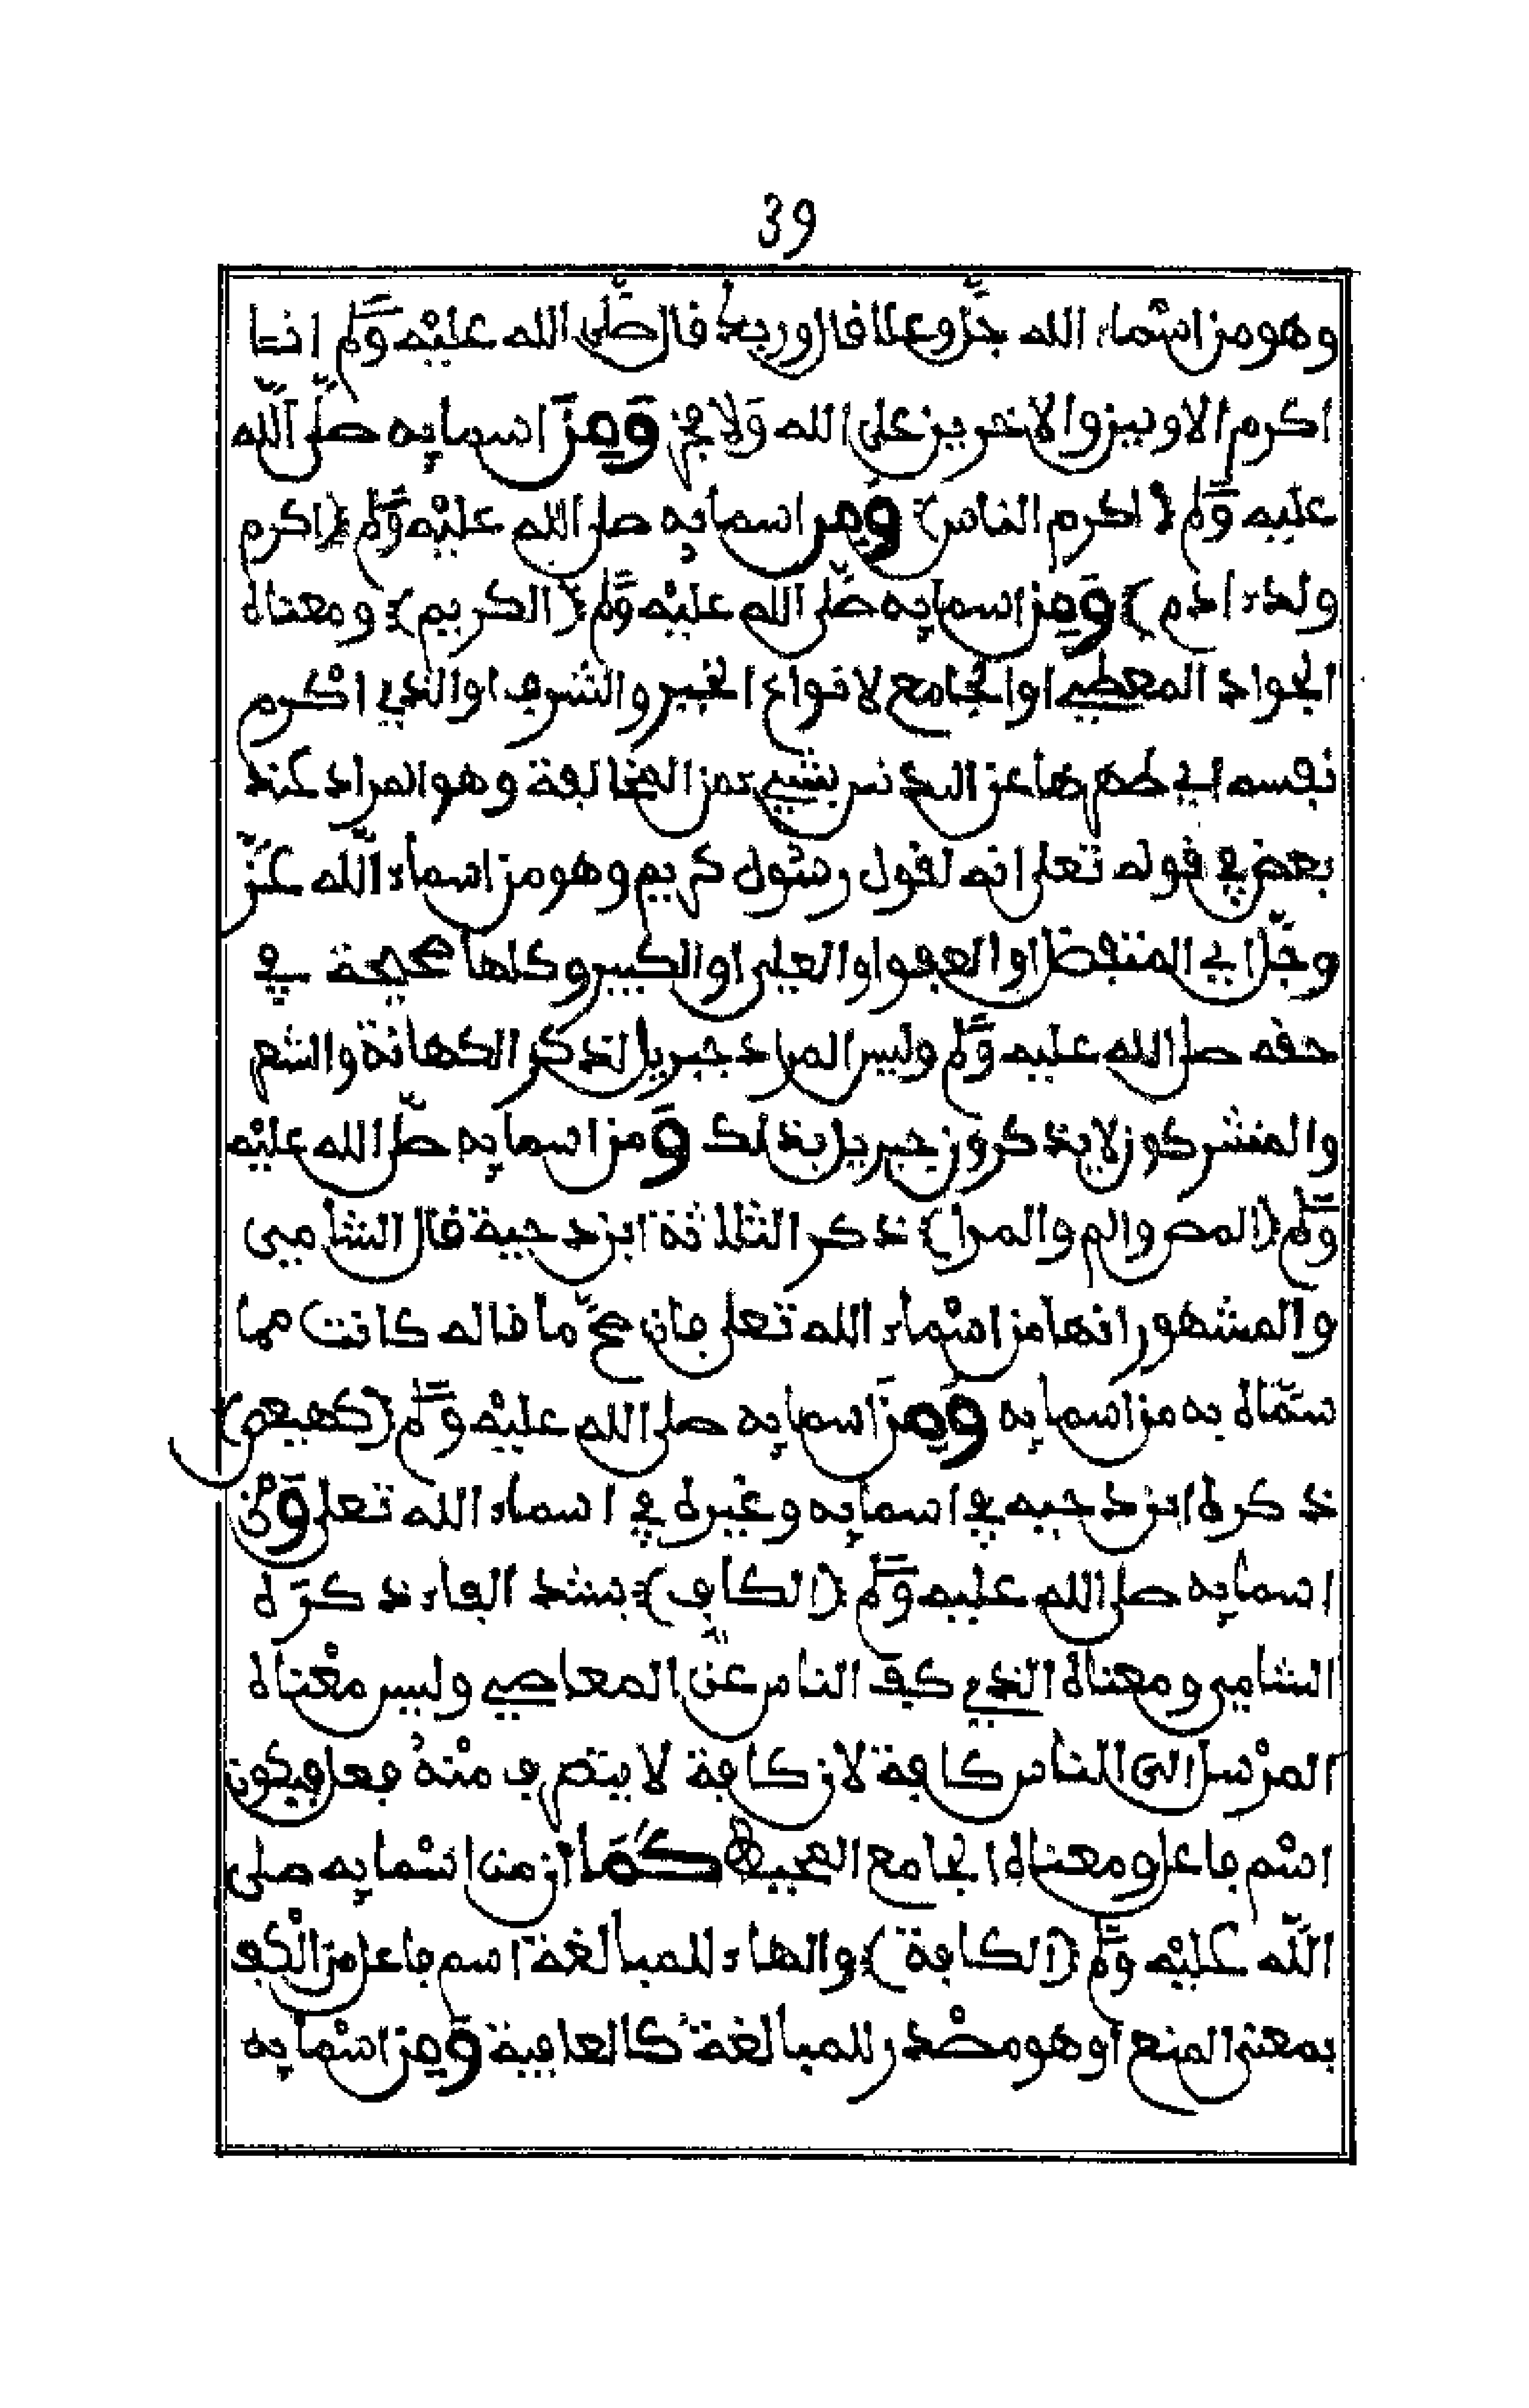 39
وهو من اسماء الله جلّ وعلا قال وربك قال صلى الله عليه وسلم انا
اكرم الاولين والاخرين على الله ولا فخر ومن اسمايه صلى الله
عليه وسلم (اكرم الناس) ومن اسمايه صلى الله عليه وسلم (اكرم
ولد ادم) ومن اسمايه صلى الله عليه وسلم (الكريم) ومعناه
الجواد المعطي او الجامع لانواع الخير والشرف او الذي اكرم
نفسه اي طهرها عن التدنس بشيء من المخالفة وهو المراد عند
بعض في قوله تعلى انه لقول رسول كريم وهو من اسماء الله عزّ
وجلّ اي المتفضل او العفو او العلي او الكبير وكلها صحيحة في
حقه صلى الله عليه وسلم وليس المراد جبريل لذكر الكهانة والشعر
والمشركون لا يذكرون جبريل بذلك ومن اسمايه صلى الله عليه
وسلم (المص والم والمرا) ذكر الثلاثة ابن دحية قال الشامي
والمشهور انها من اسماء الله تعلى فان صحّ ما قاله كانت مما
سمّاه به من اسمايه ومن اسمايه صلى الله عليه وسلم (كهيعص)
ذكره ابن دحيه في اسمايه وغيره في اسماء الله تعلى ومن
اسمايه صلى الله عليه وسلم (الكاف) بشد الفاء ذكره
الشامي ومعناه الذي كف الناس عن المعاصي وليس معناه
المرسل الى الناس كافة لان كافة لا يتصرف منه فعل فيكون
اسم فاعل ومعناه الجامع المحيط كما ان من اسمايه صلى
الله عليه وسلم (الكافة) والهاء للمبالغة اسم فاعل من الكف
بمعنى المنع او هو مصدر للمبالغة كالعافية ومن اسمايه